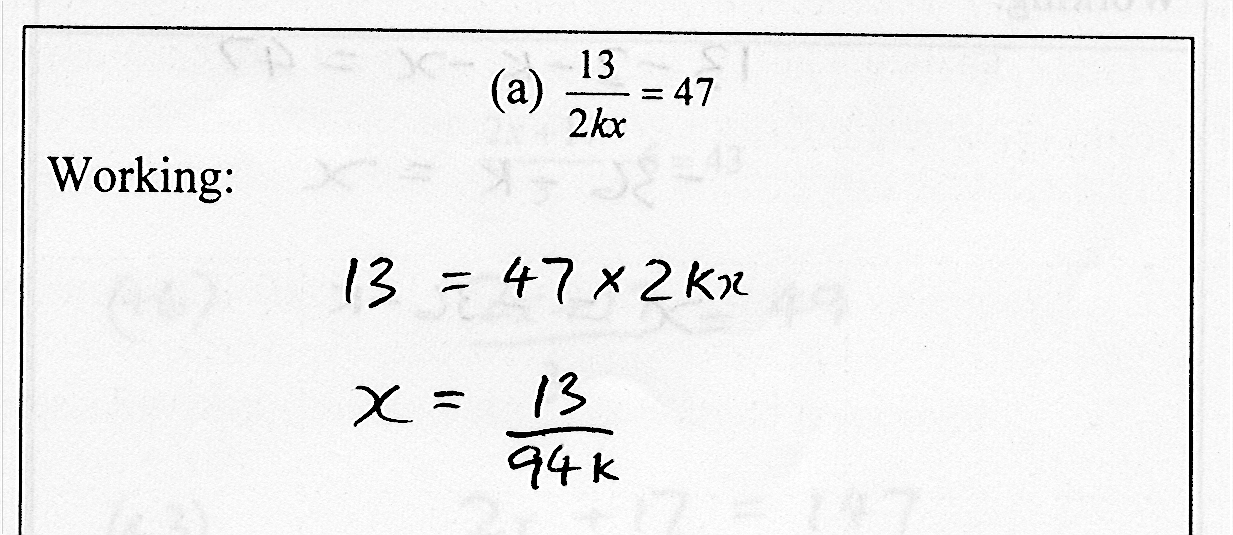 (a) 13/2kx = 47
Working:
13 = 47 × 2kx
x = 13/94k